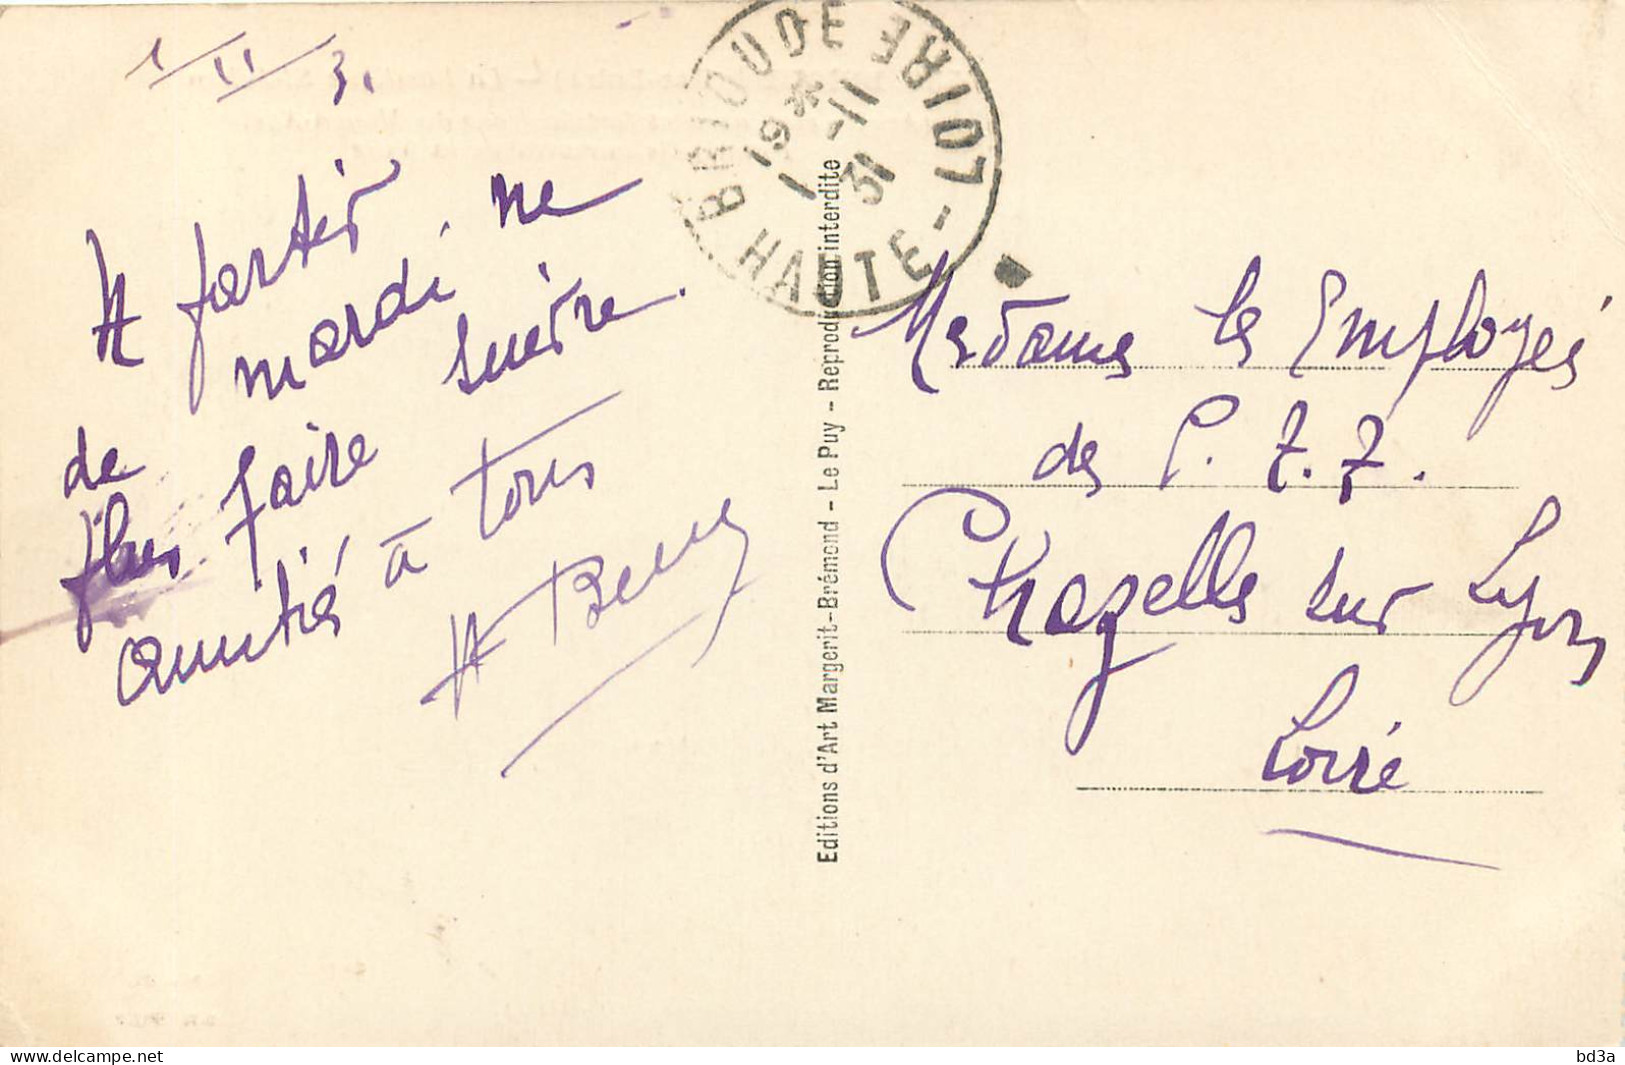 1 II 31
A partir
de mardi, ne
plus faire suivre.
amitiés à tous
BRIOUDE
HAUTE-LOIRE
19 *
1 -11
31
Editions d'Art Margerit-Brémond - Le Puy - Reproduction interdite
Mesdames les Employées
des P. T. T.
Chazelles sur Lyon
Loire
www.delcampe.net
bd3a